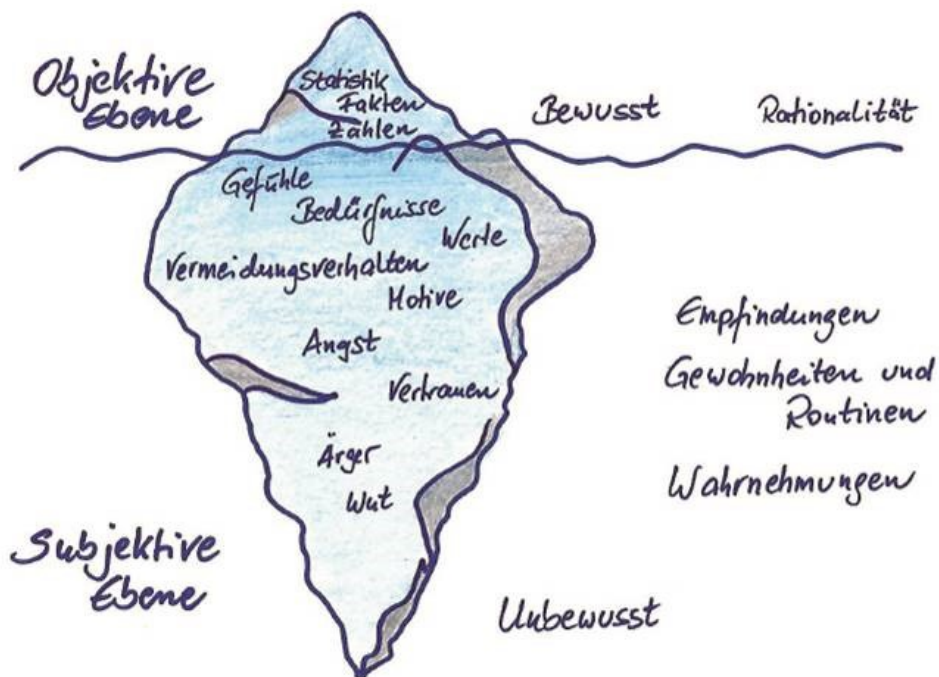 Objektive
Ebene
Statistik
Fakten
Zahlen
Bewusst
Rationalität
Gefühle
Bedürfnisse
Werte
Vermeidungsverhalten
Motive
Angst
Vertrauen
Ärger
Wut
Empfindungen
Gewohnheiten und
Routinen
Wahrnehmungen
Subjektive
Ebene
Unbewusst